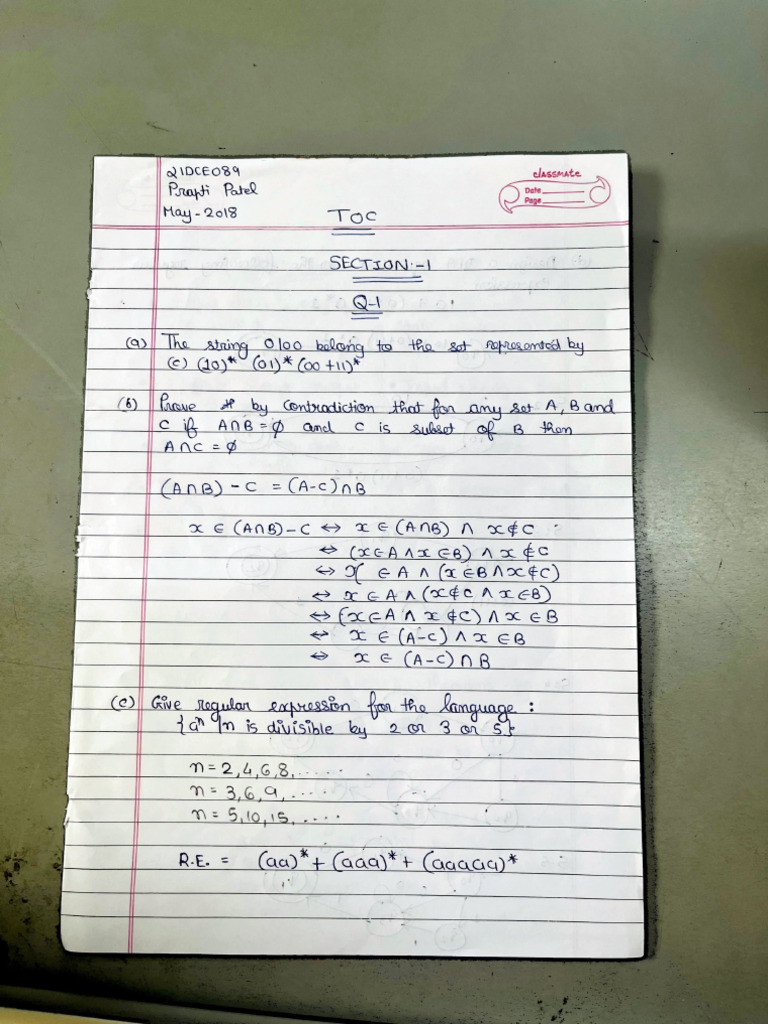 21DCE089
Prapti Patel
May-2018
classmate
Date
Page
TOC
SECTION-1
Q-1
(a) The string 0100 belong to the set represented by
(c) (10)* (01)* (00+11)*
(b) Prove by contradiction that for any set A, B and
C if A∩B = ∅ and C is subset of B then
A∩C = ∅
(A∩B) - C = (A-C)∩B
x ∈ (A∩B) - C ↔ x ∈ (A∩B) ∧ x∉C
↔ (x∈A ∧ x∈B) ∧ x∉C
↔ x ∈ A ∧ (x∈B ∧ x∉C)
↔ x ∈ A ∧ (x∉C ∧ x∈B)
↔ (x∈A ∧ x∉C) ∧ x∈B
↔ x ∈ (A-C) ∧ x∈B
↔ x ∈ (A-C) ∩ B
(c) Give regular expression for the language :
{a^n | n is divisible by 2 or 3 or 5}
n = 2,4,6,8, .....
n = 3,6,9, .....
n = 5,10,15, ....
R.E. = (aa)* + (aaa)* + (aaaaa)*